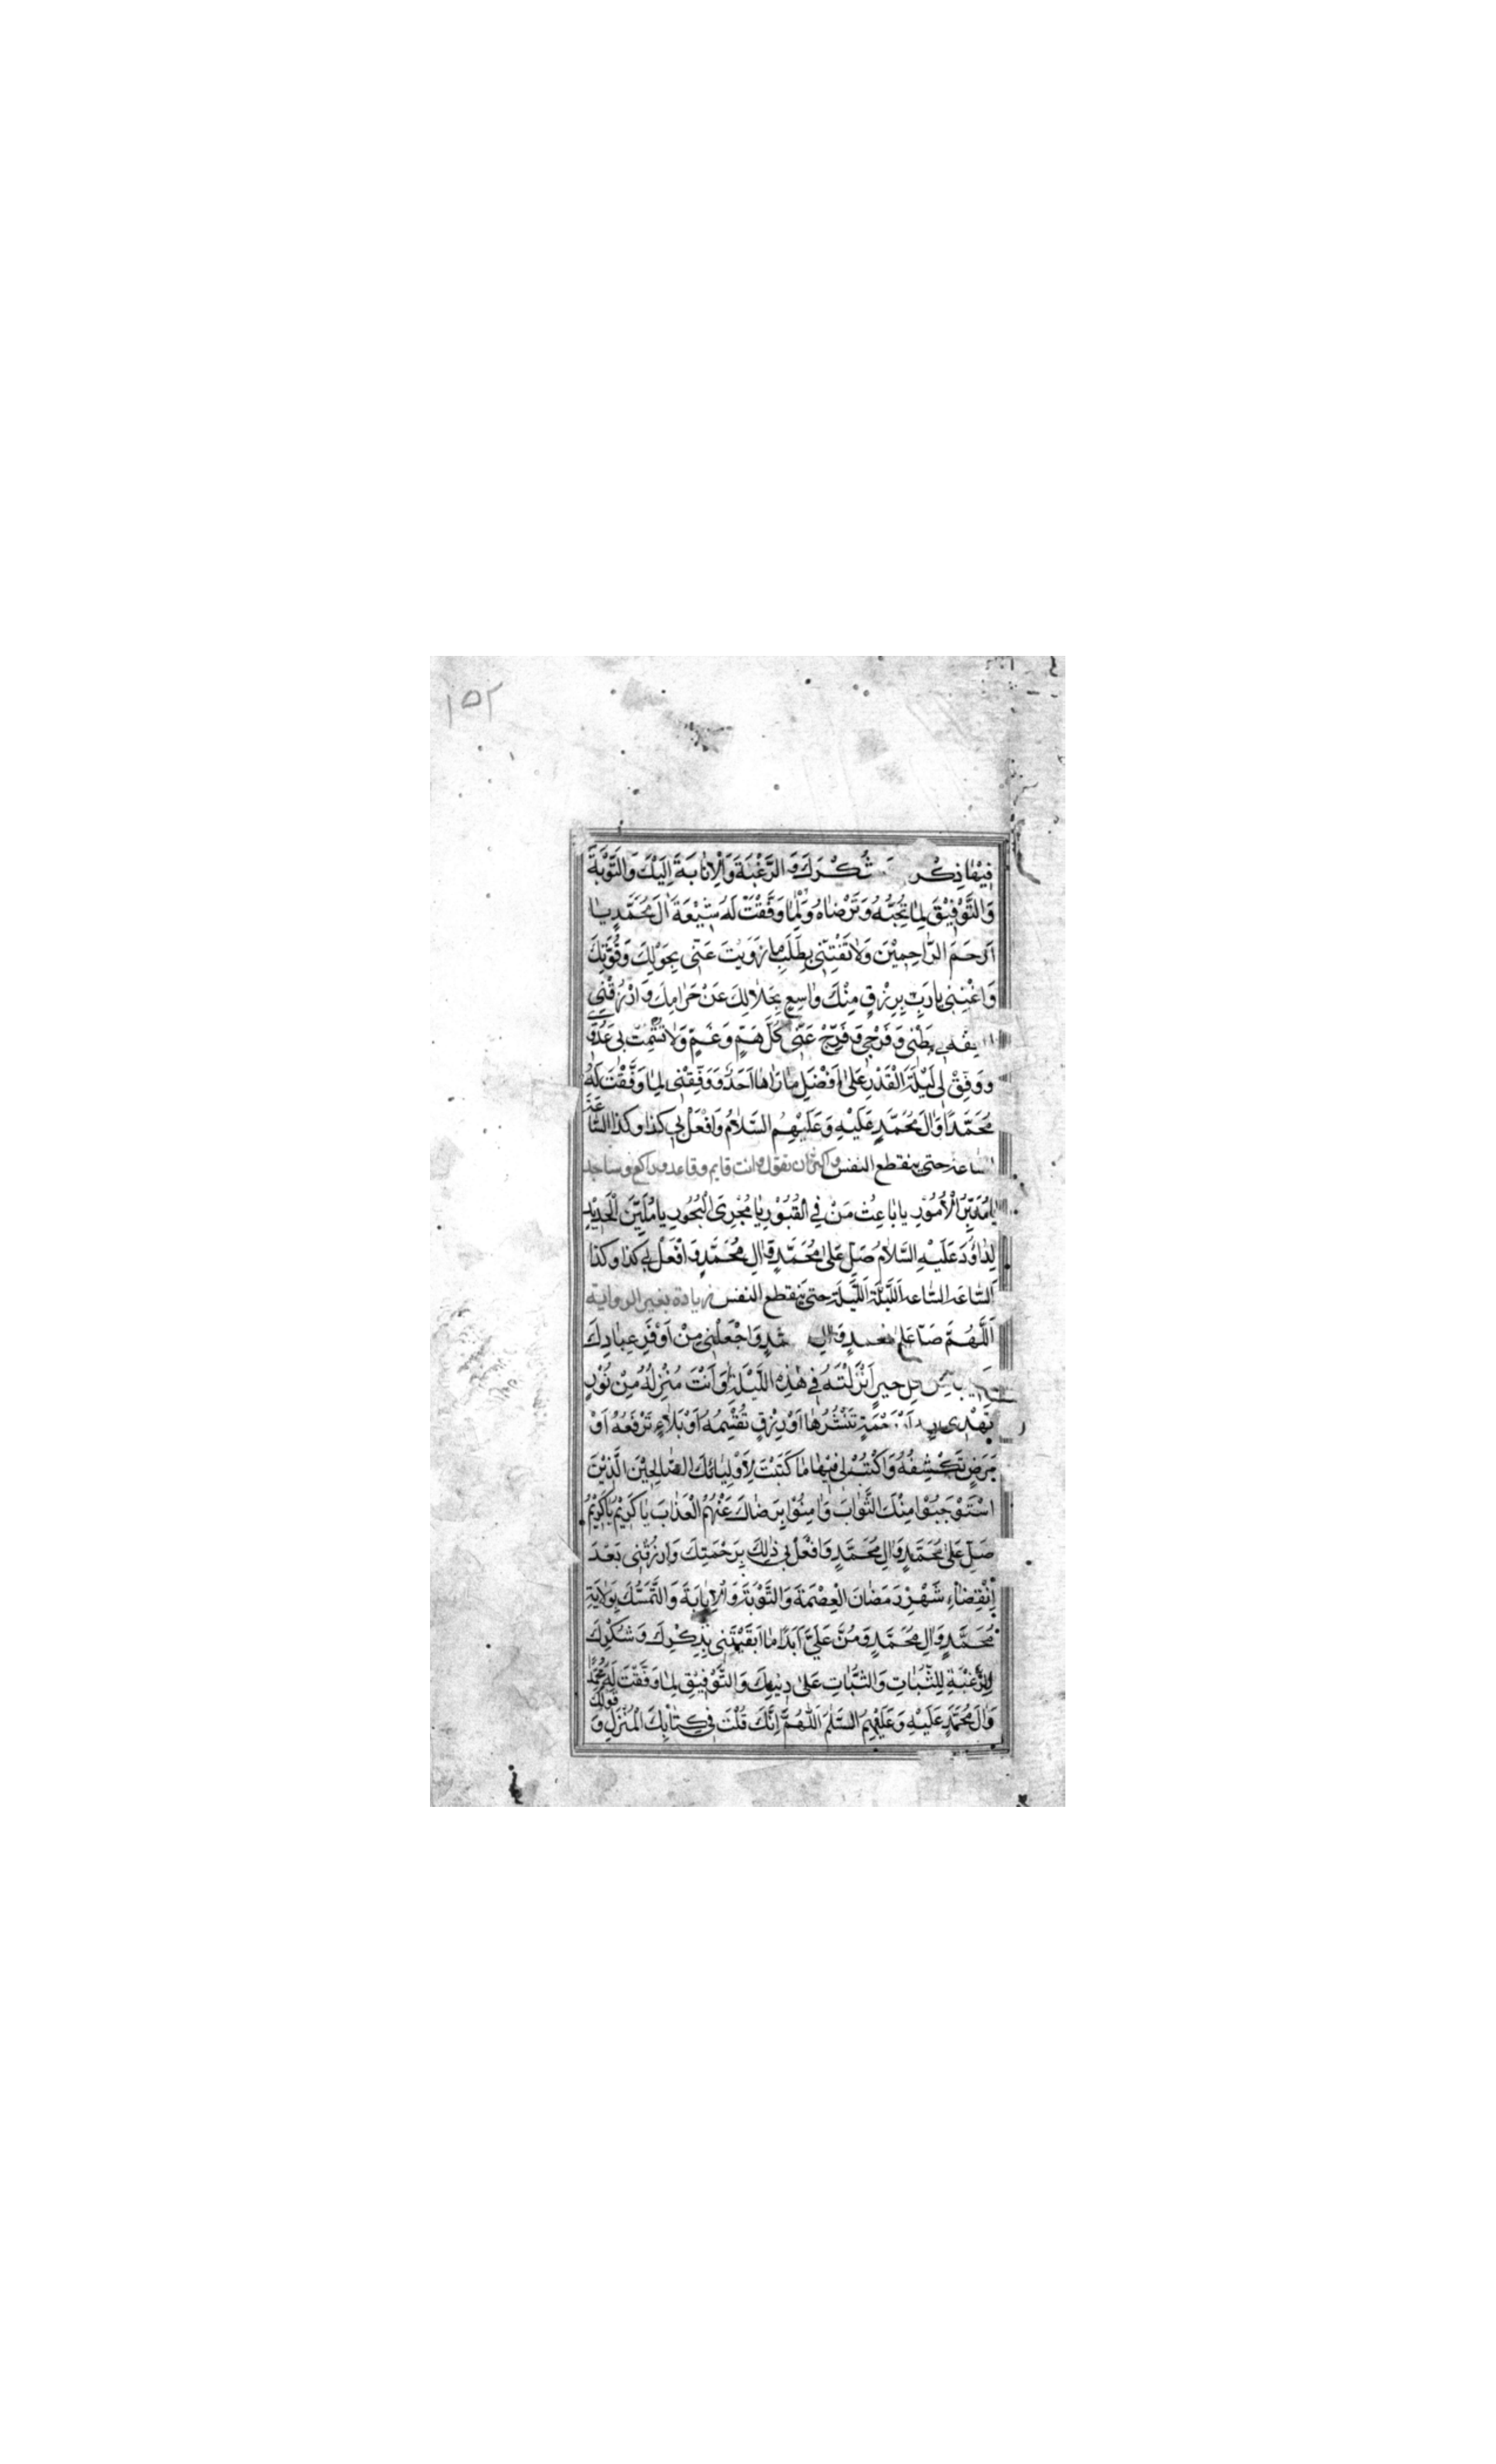 ١٥٢
فِيهَا ذِكْرَ شُكْرَكَ وَ الرَّغْبَةَ وَالْاِنَابَةَ اِلَيْكَ وَالتَّوْبَةَ
وَالتَّوْفِيْقَ لِمَا تُحِبُّهُ وَتَرْضَاهُ وَلِمَا وَفَّقْتَ لَهُ شِيْعَةَ اٰلَ مُحَمَّدٍ يَا
اَرْحَمَ الرَّاحِمِيْنَ وَلَا تَفْتِنِّى بِطَلَبِ مَا زَوَيْتَ عَنِّى بِحَوْلِكَ وَقُوَّتِكَ
وَاغْنِنِى يَا رَبِّ بِرِزْقٍ مِنْكَ وَاسِعٍ بِحَلَالِكَ عَنْ حَرَامِكَ وَارْزُقْنِى
فِى بَطْنِى وَفَرْجِى وَفَرِّجْ عَنِّى كُلَّ هَمٍّ وَغَمٍّ وَلَا تُشْمِتْ بِى عَدُوِّى
وَوَفِّقْ لِى لَيْلَةَ الْقَدْرِ عَلٰى اَفْضَلِ مَا رَاٰهَا اَحَدٌ وَوَفِّقْنِى لِمَا وَفَّقْتَ لَهُ
مُحَمَّدًا وَاٰلَ مُحَمَّدٍ عَلَيْهِ وَعَلَيْهِمُ السَّلَامُ وَافْعَلْ بِى كَذَا وَكَذَا السَّاعَةَ
الساعة حتى ينقطع النفس واكثر ان تقول وانت قايم وقاعد وراكع وساجد
يَا مُدَبِّرَ الْاُمُوْرِ يَا بَاعِثَ مَنْ فِى الْقُبُوْرِ يَا مُجْرِىَ الْبُحُورِ يَا مُلَيِّنَ الْحَدِيْدِ
لِدَاوُدَ عَلَيْهِ السَّلَامُ صَلِّ عَلٰى مُحَمَّدٍ وَاٰلِ مُحَمَّدٍ وَافْعَلْ بِى كَذَا وَكَذَا
اَلسَّاعَةَ السَّاعَةَ اللَّيْلَةَ اللَّيْلَةَ حتى ينقطع النفس زيادة بغير الرواية
اَللّٰهُمَّ صَلِّ عَلٰى مُحَمَّدٍ وَاٰلِ مُحَمَّدٍ وَاجْعَلْنِى مِنْ اَوْفَرِ عِبَادِكَ
نَصِيبًا مِنْ كُلِّ خَيْرٍ اَنْزَلْتَهُ فِى هٰذِهِ اللَّيْلَةِ اَوْ اَنْتَ مُنْزِلُهُ مِنْ نُوْرٍ
تَهْدِى بِهِ اَوْ رَحْمَةٍ تَنْشُرُهَا اَوْ رِزْقٍ تُقَسِّمُهُ اَوْ بَلَاءٍ تَرْفَعُهُ اَوْ
مَرَضٍ تَكْشِفُهُ وَاكْتُبْ لِى فِيْهَا مَا كَتَبْتَ لِاَوْلِيَائِكَ الصَّالِحِيْنَ الَّذِيْنَ
اسْتَوْجَبُوْا مِنْكَ الثَّوَابَ وَاٰمِنُوْا بِرِضَاكَ عَنْهُمُ الْعَذَابَ يَا كَرِيْمُ يَا كَرِيْمُ
صَلِّ عَلٰى مُحَمَّدٍ وَاٰلِ مُحَمَّدٍ وَافْعَلْ بِى ذٰلِكَ بِرَحْمَتِكَ وَارْزُقْنِى بَعْدَ
اِنْقِضَاءِ شَهْرِ رَمَضَانَ الْعِصْمَةَ وَالتَّوْبَةَ وَالْاِنَابَةَ وَالتَّمَسُّكَ بِوِلَايَةِ
مُحَمَّدٍ وَاٰلِ مُحَمَّدٍ وَمُنَّ عَلَىَّ اَبَدًا مَا اَبْقَيْتَنِى بِذِكْرِكَ وَشُكْرِكَ
وَالرَّغْبَةِ لِلثَّبَاتِ وَالثَّبَاتِ عَلٰى دِيْنِكَ وَالتَّوْفِيْقِ لِمَا وَفَّقْتَ لَهُ مُحَمَّدًا
وَاٰلَ مُحَمَّدٍ عَلَيْهِ وَعَلَيْهِمُ السَّلَمُ اَللّٰهُمَّ اِنَّكَ قُلْتَ فِى كِتَابِكَ الْمُنْزَلِ وَ قَوْلُكَ